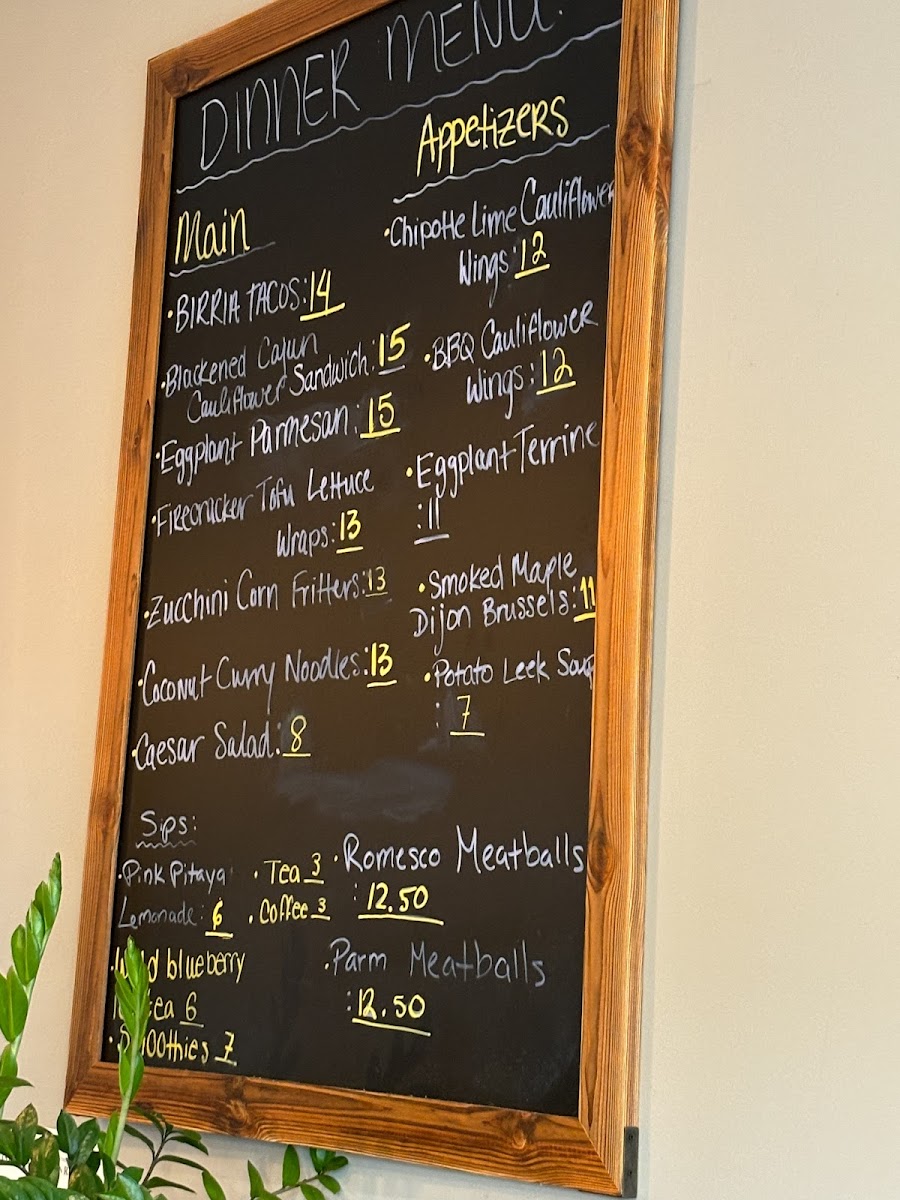 DINNER MENU:
Main
• BIRRIA TACOS: 14
• Blackened Cajun
Cauliflower Sandwich: 15
• Eggplant Parmesan: 15
• Firecracker Tofu Lettuce
Wraps: 13
• Zucchini Corn Fritters: 13
• Coconut Curry Noodles: 13
• Caesar Salad: 8
Appetizers
• Chipotle Lime Cauliflower
Wings: 12
• BBQ Cauliflower
Wings: 12
• Eggplant Terrine
: 11
• Smoked Maple
Dijon Brussels: 11
• Potato Leek Soup
: 7
Sips:
• Pink Pitaya
Lemonade: 6
• Wild blueberry
tea 6
• Smoothies 7
• Tea 3
• Coffee 3
• Romesco Meatballs
: 12.50
• Parm Meatballs
: 12.50